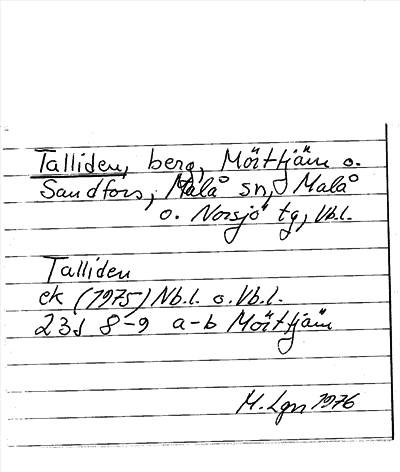 Talliden, berg, Mörttjärn o.
Sandfors, Malå sn, Malå
o. Norsjö tg, Vb.l.
Talliden
ek (1975) Nb.l. o. Vb.l.
23J 8-9 a-b Mörttjärn
M. Lgn 1976